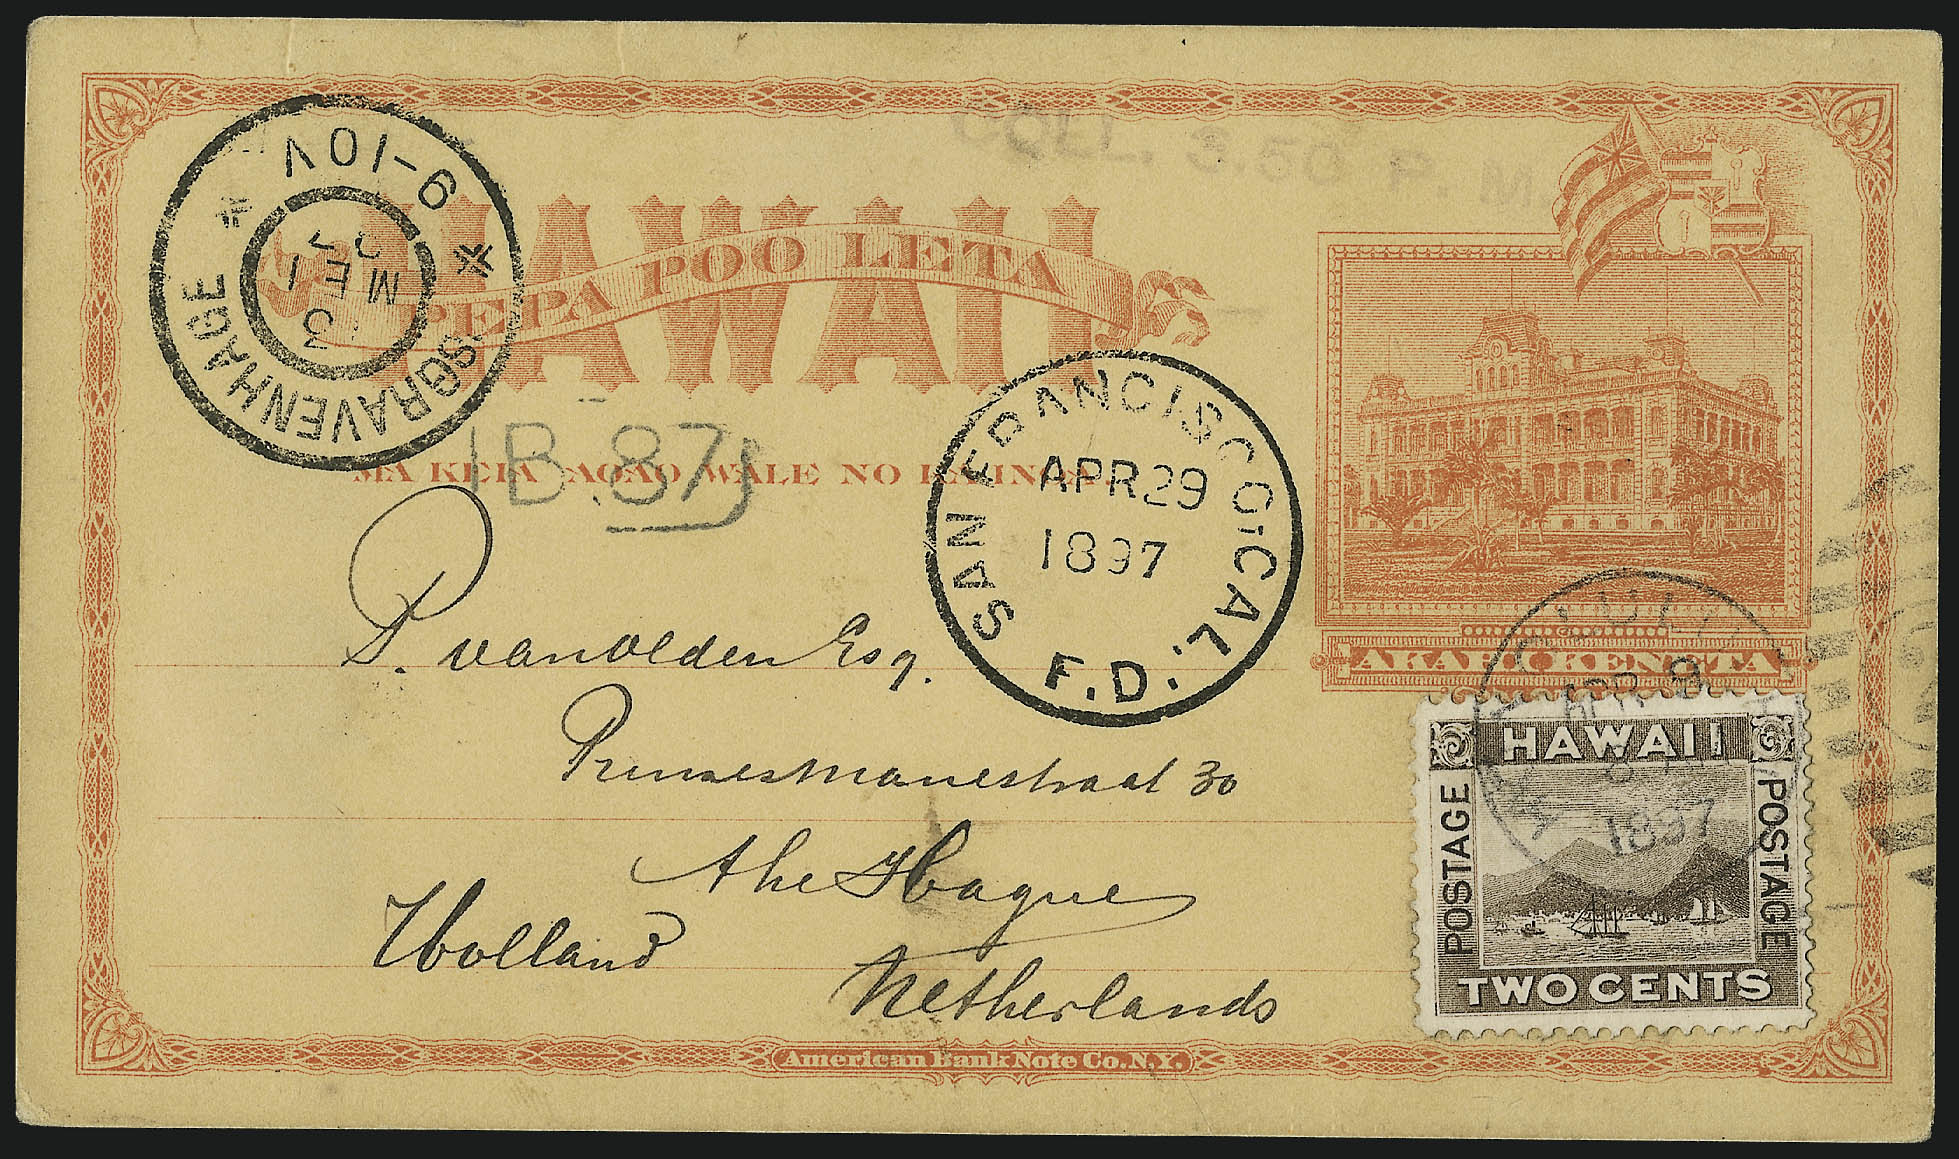 COLL. 3.50 P. M.
HAWAII
PEPA POO LETA
'SGRAVENHAGE
9-10V
MEI
B.87
MA KEIA AOAO WALE NO KA INOA.
SAN FRANCISCO, CAL.
APR 29
1897
F.D.
AKAHI KENETA
P. van Olden Esq.
Prinsesmariestraat 30
The Hague
Holland
Netherlands
HONOLULU
APR 9
1897
HAWAII
POSTAGE
POSTAGE
TWO CENTS
American Bank Note Co. N.Y.